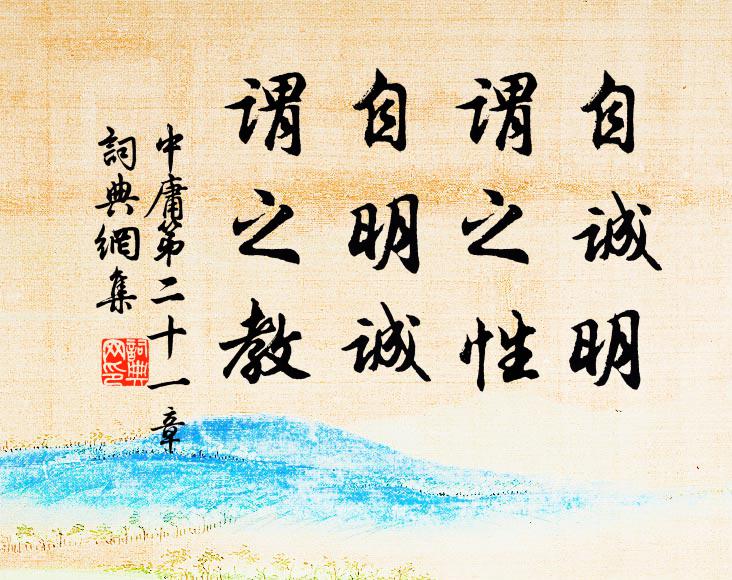 自诚明
谓之性
自明诚
谓之教
中庸第二十一章
詞典網集
詞典
网印